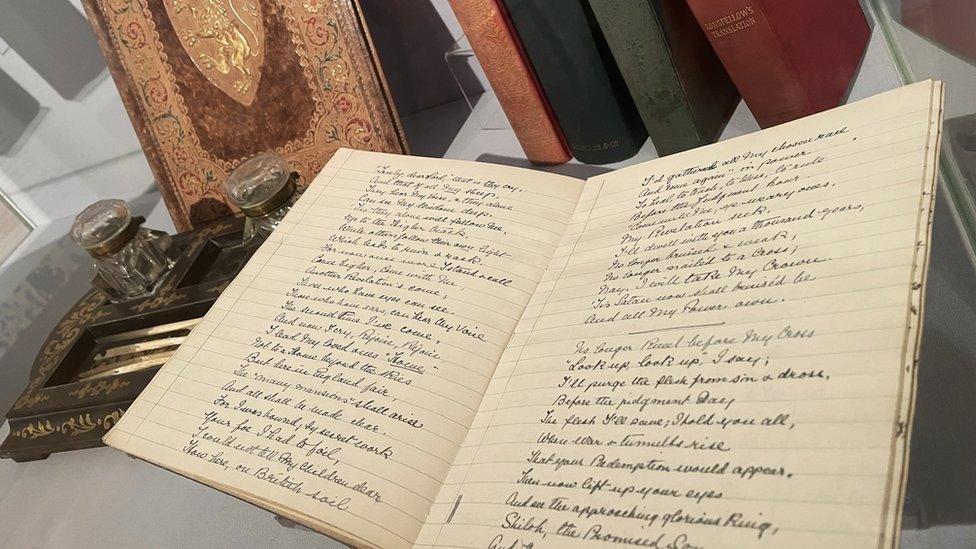 LONGFELLOW'S
TRANSLATION
"Truly, dear Lord," that is thy cry,
And that of all My sheep
They hear My Voice, & they alone
Can in My bosom sleep,
So they alone will follow Me,
Up to the higher track,
While others follow their own light
Which leads to ruin & rack.
For now once more I stand & call
Come higher, Come with Me,
Another Revelation's come;
Those who have eyes can see.
Those who have ears, can hear My Voice
The second time I've come,
And now I cry, Rejoice, Rejoice
I lead My loved ones "Home"
Not to a Home beyond the skies
But here in England fair,
The "many mansions" shall arise
And all shall be made clear.
For I was bound, by secret work
Your foe I had to foil
I could not tell My Children dear
'Twas here, on British soil
I'd gathered all My chosen race
And come again in power
To heal, to teach, to bless, to rule
Before the judgment hour.
Come unto Me, ye weary ones,
My Revelation seek.
I'll dwell with you a thousand years,
No longer bruised & weak,
No longer nailed to a Cross;
Nay, I will take My Crown.
'Tis Satan now shall bruised be
And all My Power own.
No longer Kneel before My Cross
"Look up, look up," I say;
I'll purge the flesh from sin & dross,
Before the judgment Day
The flesh I'll save; I told you all,
When war & tumults rise
That your Redemption would appear,
Then now lift up your eyes
And see the approaching glorious King,
Shiloh, the Promised Son